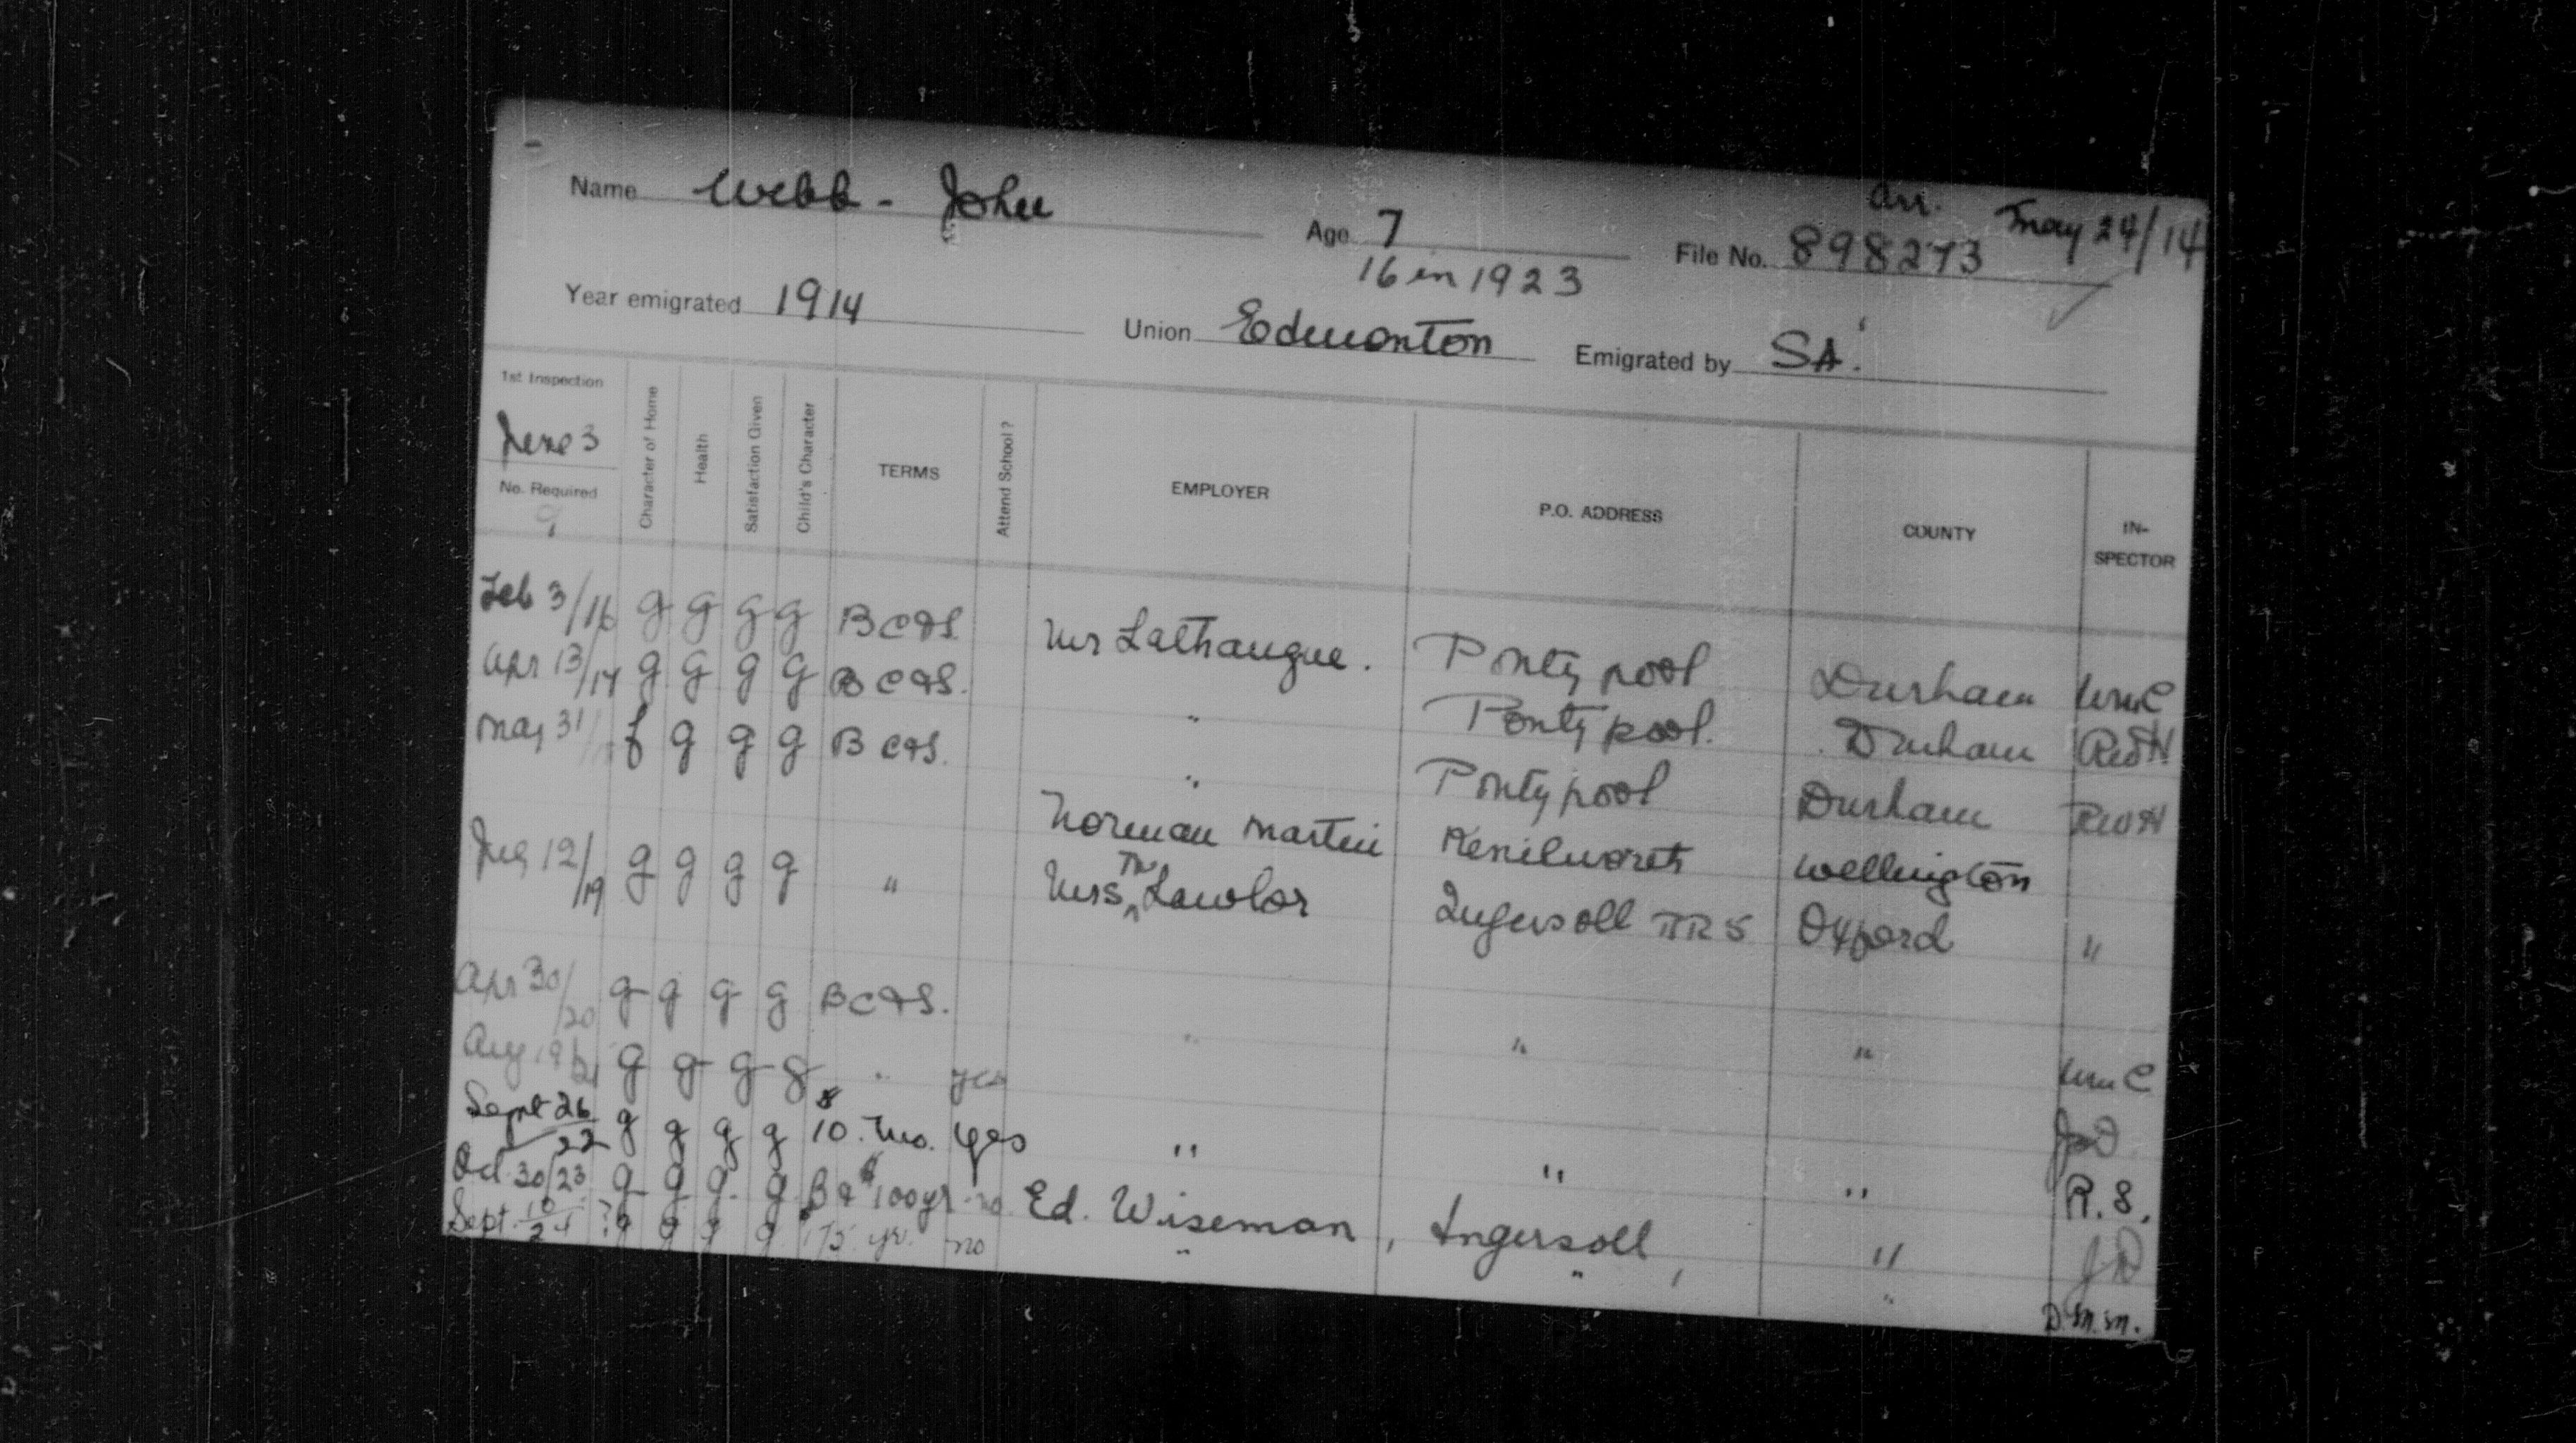 arr. May 24/14
Name Webb - John Age 7 File No. 898273
16 in 1923
Year emigrated 1914 Union Edmonton Emigrated by SA.
1st Inspection June 3 No. Required 9 Character of Home Health Satisfaction Given Child's Character TERMS Attend School? EMPLOYER P.O. ADDRESS COUNTY IN-SPECTOR
Feb 3/16 g g g g B C & S. Mr Lathangue. Ponty pool Durham WmC
Apr 13/17 g g g g B C & S. " Ponty pool. Durham RWH
May 31 f g g g B C & S. " Ponty pool Durham RWH
Norman Martin Kenilworth Wellington
12/19 g g g g " Mrs Th Lawlor Ingersoll RR 5 Oxford "
Apr 30/20 g g g g B C & S. " " " WmC
Aug 19/21 g g g g " yes
Sept 26/22 g g g g $10. Mo. yes " " " R. S.
Oct 30/23 g g g g B & $100 yr no Ed. Wiseman, Ingersoll, "
Sept. 10/24 g g g g 175. yr. no " " " D.M.M.